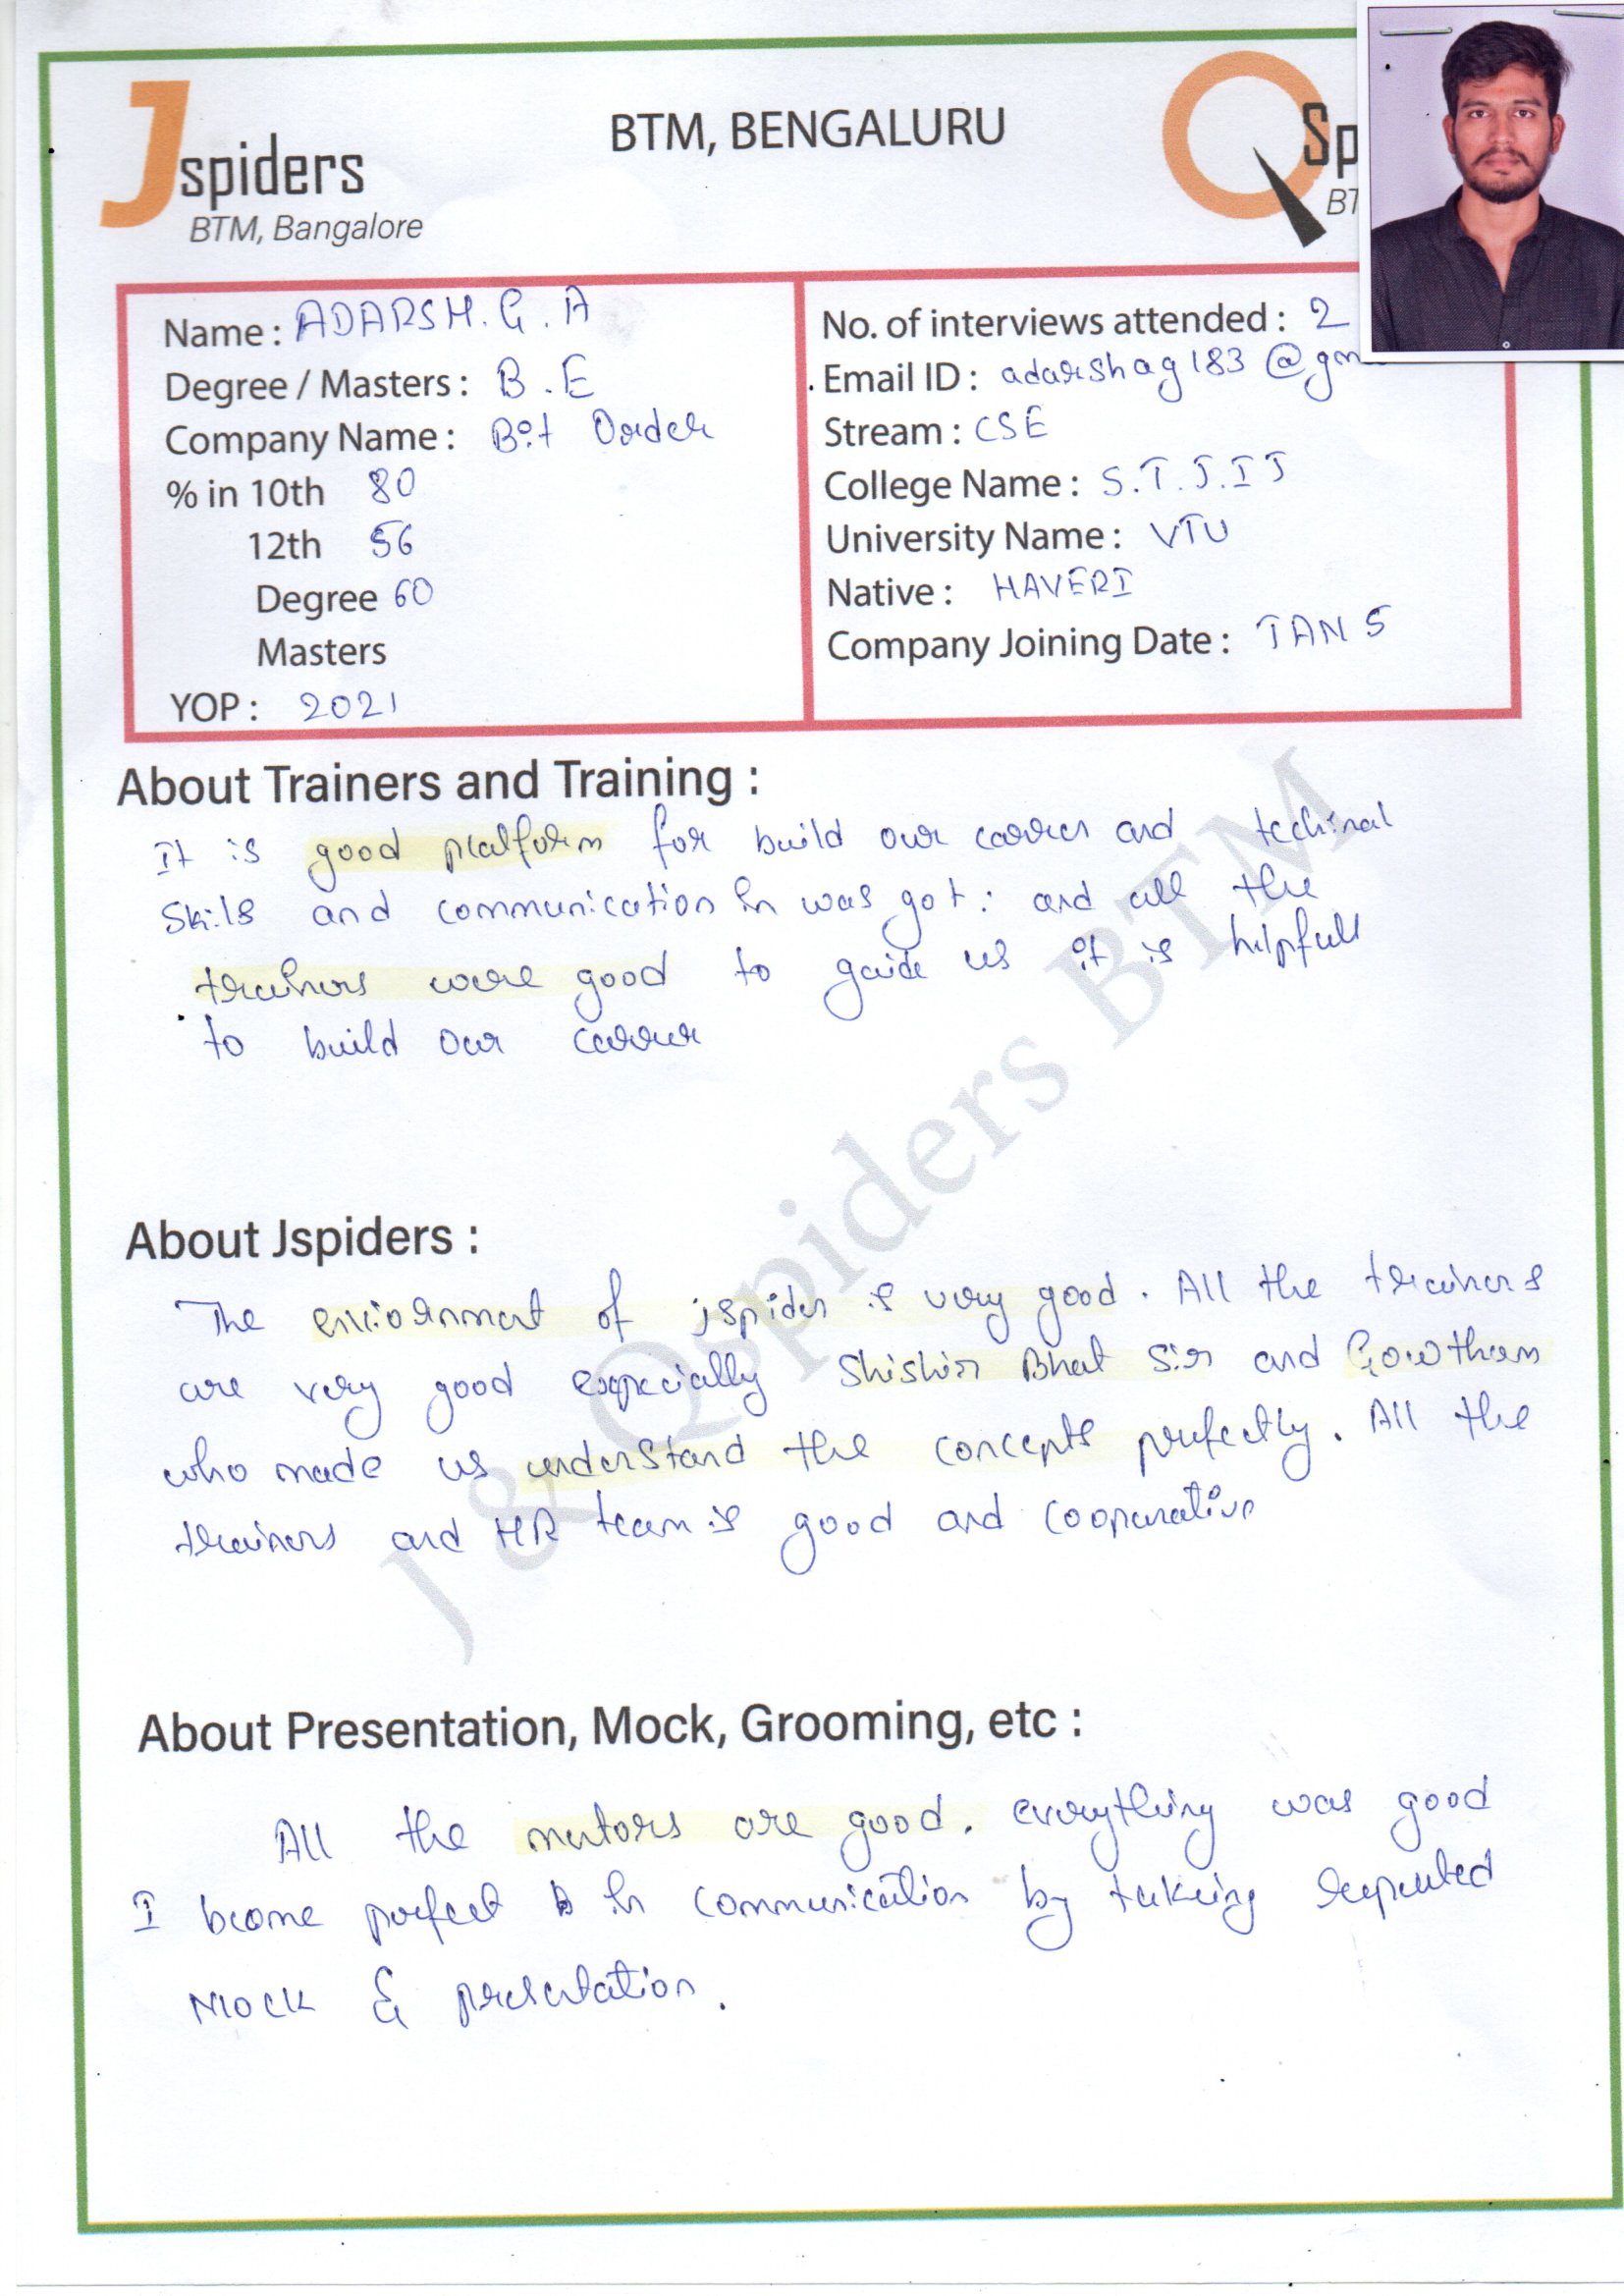 Jspiders
BTM, Bangalore
BTM, BENGALURU
QSp
BT
Name : ADARSH. G. A
Degree / Masters : B.E
Company Name : Bit Order
% in 10th 80
12th 56
Degree 60
Masters
YOP : 2021
No. of interviews attended : 2
Email ID : adarshag183@gm
Stream : CSE
College Name : S.T.J.IT
University Name : VTU
Native : HAVERI
Company Joining Date : JAN 5
About Trainers and Training :
It is good platform for build our carrer and techinal
Skills and communication in was got. and all the
trainers were good to guide us it is helpfull
to build our carrer
About Jspiders :
The enviornment of jspider is very good. All the trainers
are very good especially Shishir Bhat Sir and Gowtham
who made us understand the concepts perfectly. All the
trainers and HR team is good and cooparative
About Presentation, Mock, Grooming, etc :
All the mentors are good. everything was good
I become perfect in communication by taking repeated
Mock & presentation.
J & Qspiders BTM